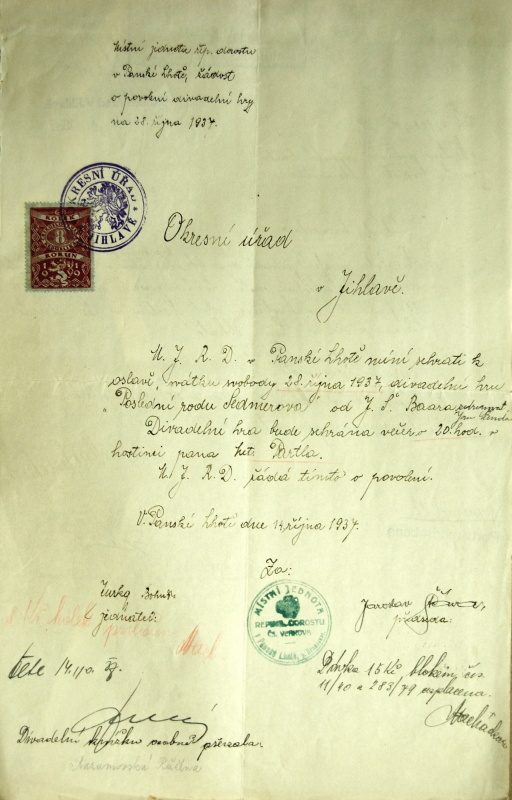 Místní jednota rep. dorostu
v Panské Lhotě, žádost
o povolení divadelní hry
na 28. října 1937.
OKRESNÍ ÚŘAD
V JIHLAVĚ
KOLEK
8
KORUN
Okresní úřad
v Jihlavě.
M. J. R. D. v Panské Lhotě míní sehrati k
oslavě svátku svobody 28. října 1937, divadelní hru
„Poslední rodu Sedmerova" od J. Š. Baara
Divadelní hra bude sehrána večer o 20. hod. v
hostinci pana Partla.
M. J. R. D. žádá tímto o povolení.
V Panské Lhotě dne 14. října 1937.
Za:
jednatel:
MÍSTNÍ JEDNOTA
REPUBL. DOROSTU
ČS. VENKOVA
Jaroslav
předseda:
Dávka 15 Kč blokem čís.
11/40 a 283/79 zaplacena.
Divadelní knížku osobně převzala: